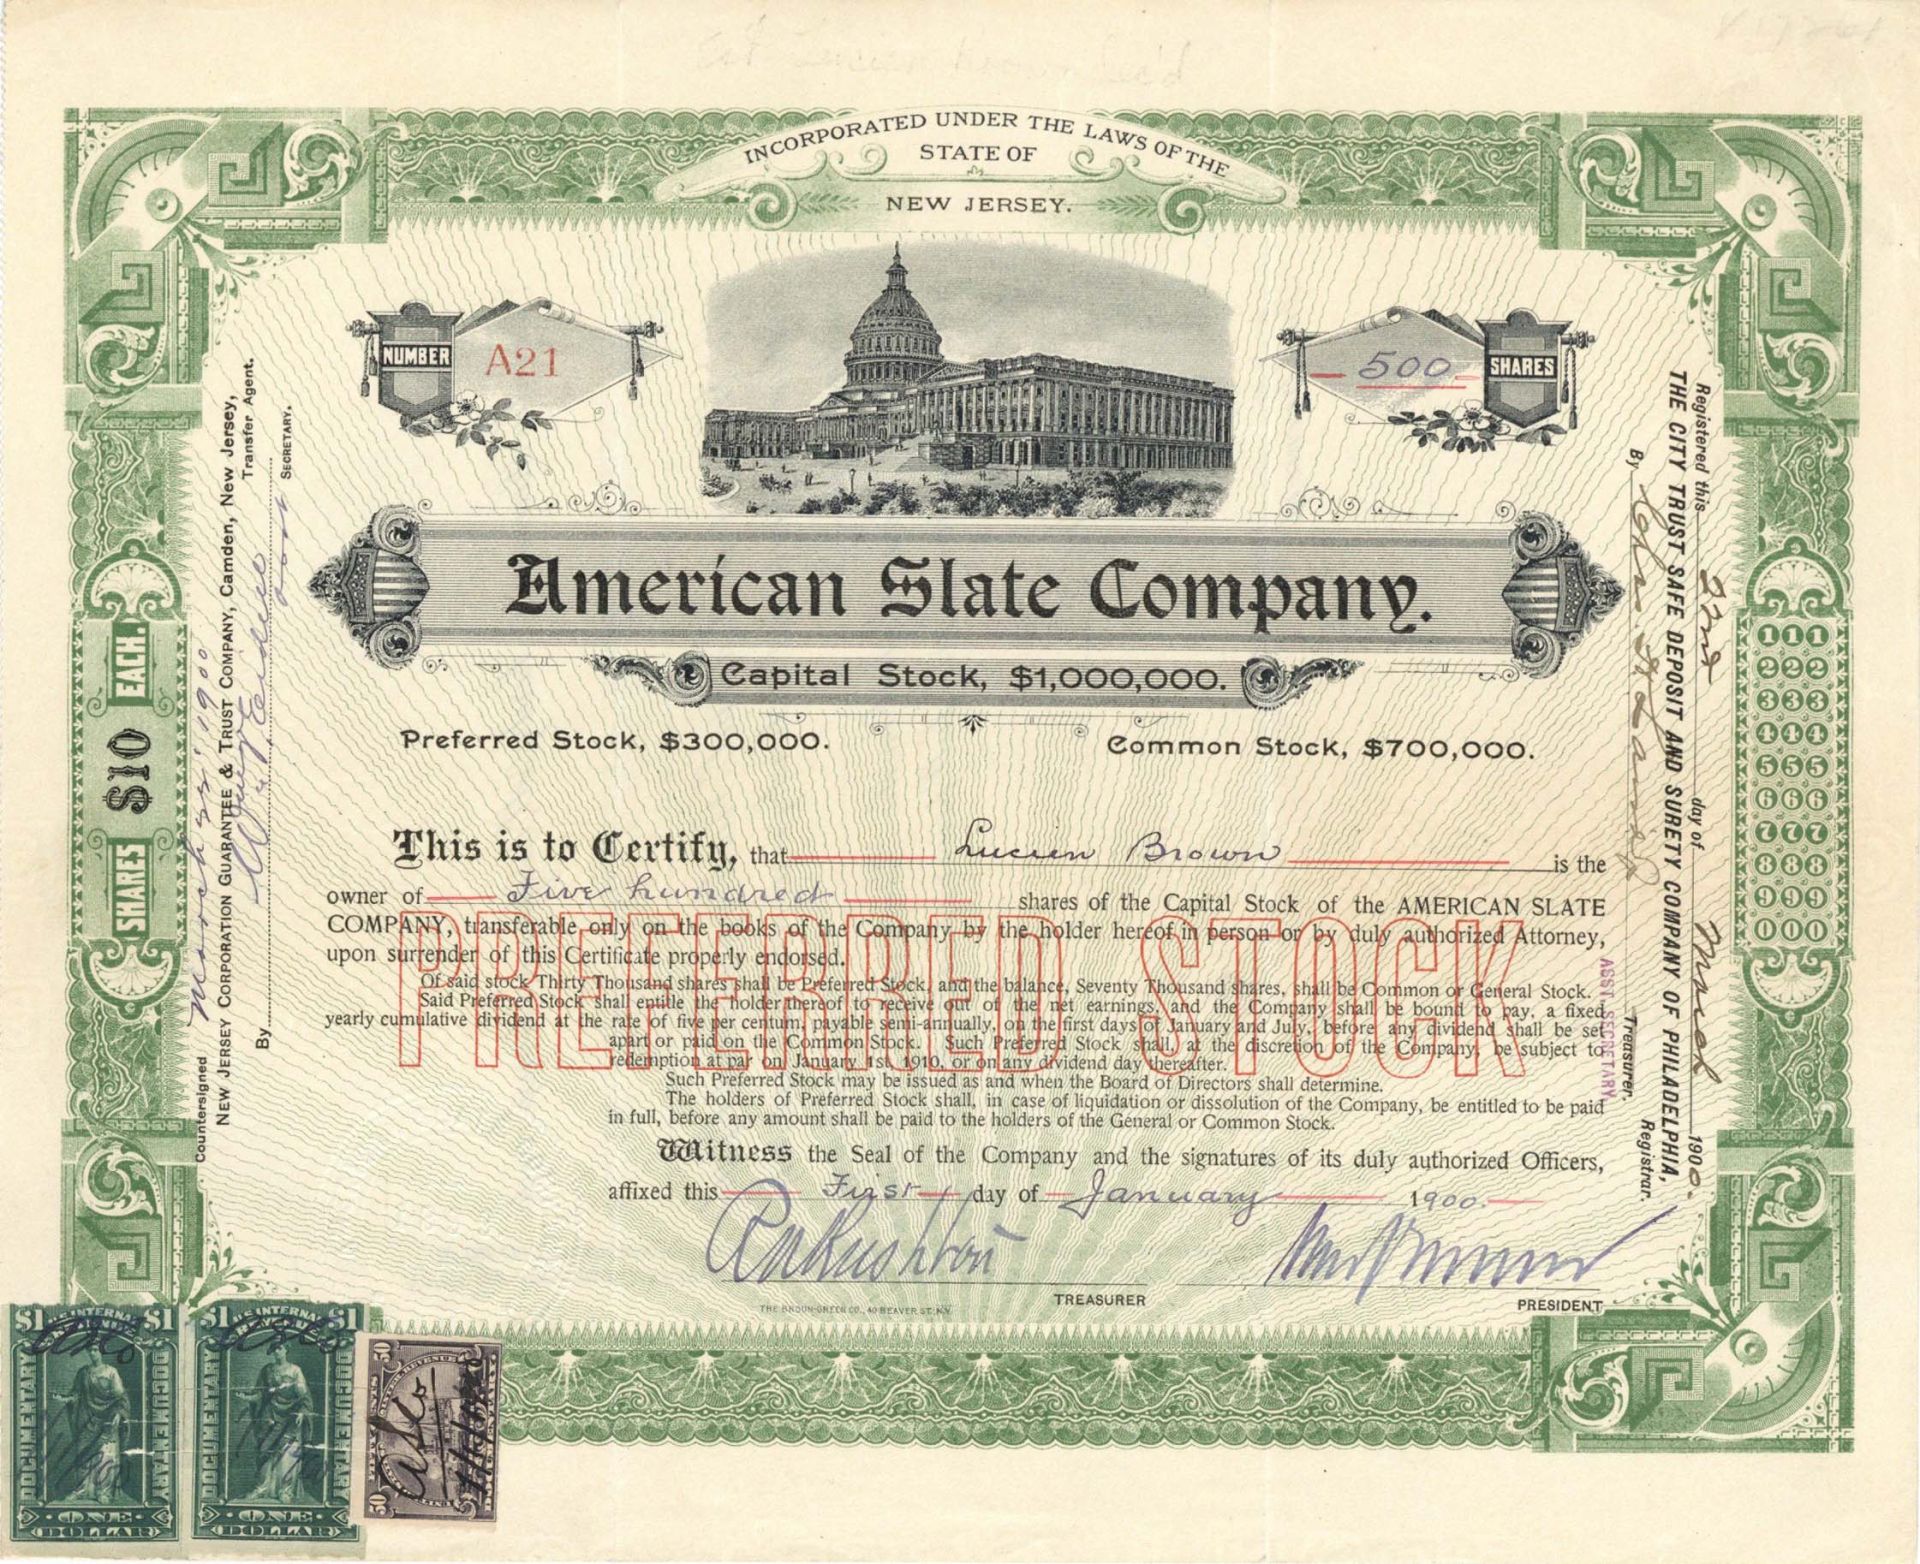 INCORPORATED UNDER THE LAWS OF THE
STATE OF
NEW JERSEY.
NUMBER
A21
500
SHARES
American Slate Company.
Capital Stock, $1,000,000.
Preferred Stock, $300,000.
Common Stock, $700,000.
This is to Certify, that Lucien Brown is the
owner of Five hundred shares of the Capital Stock of the AMERICAN SLATE
COMPANY, transferable only on the books of the Company by the holder hereof in person or by duly authorized Attorney,
upon surrender of this Certificate properly endorsed.
PREFERRED STOCK
Of said stock Thirty Thousand shares shall be Preferred Stock, and the balance, Seventy Thousand shares, shall be Common or General Stock.
Said Preferred Stock shall entitle the holder thereof to receive out of the net earnings, and the Company shall be bound to pay, a fixed
yearly cumulative dividend at the rate of five per centum, payable semi-annually, on the first days of January and July, before any dividend shall be set
apart or paid on the Common Stock. Such Preferred Stock shall, at the discretion of the Company, be subject to
redemption at par on January 1st, 1910, or on any dividend day thereafter.
Such Preferred Stock may be issued as and when the Board of Directors shall determine.
The holders of Preferred Stock shall, in case of liquidation or dissolution of the Company, be entitled to be paid
in full, before any amount shall be paid to the holders of the General or Common Stock.
Witness the Seal of the Company and the signatures of its duly authorized Officers,
affixed this First day of January 1900.
TREASURER
PRESIDENT
THE BROUN-GREEN CO., 40 BEAVER ST. N.Y.
SHARES $10 EACH.
March 22' 1900
Countersigned
NEW JERSEY CORPORATION GUARANTEE & TRUST COMPANY, Camden, New Jersey,
Transfer Agent.
By
SECRETARY.
Registered this 22nd day of March 1900.
THE CITY TRUST SAFE DEPOSIT AND SURETY COMPANY OF PHILADELPHIA,
Registrar.
By
Treasurer.
ASST. SECRETARY
111
222
333
444
555
666
777
888
999
000
$1 U.S. INTERNAL REVENUE $1
DOCUMENTARY
DOCUMENTARY
ONE
DOLLAR
$1 U.S. INTERNAL REVENUE $1
DOCUMENTARY
DOCUMENTARY
ONE
DOLLAR
50
50
FIFTY CENTS
DOCUMENTARY